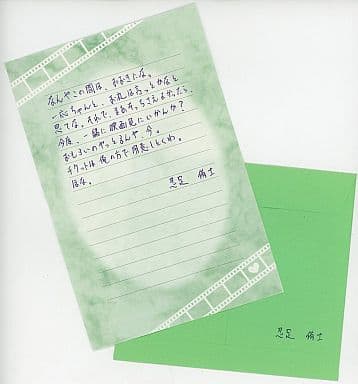 なんやこの間は、おおきにな。
一応ちゃんと、お礼は言っとかなと
思てな。それで、まぁそっちさえよかったら、
今度、一緒に映画見にいかんか?
おもしろいのやっとるんや、今。
チケットは俺の方で用意しとくわ。
ほな。
忍足 侑士
忍足 侑士